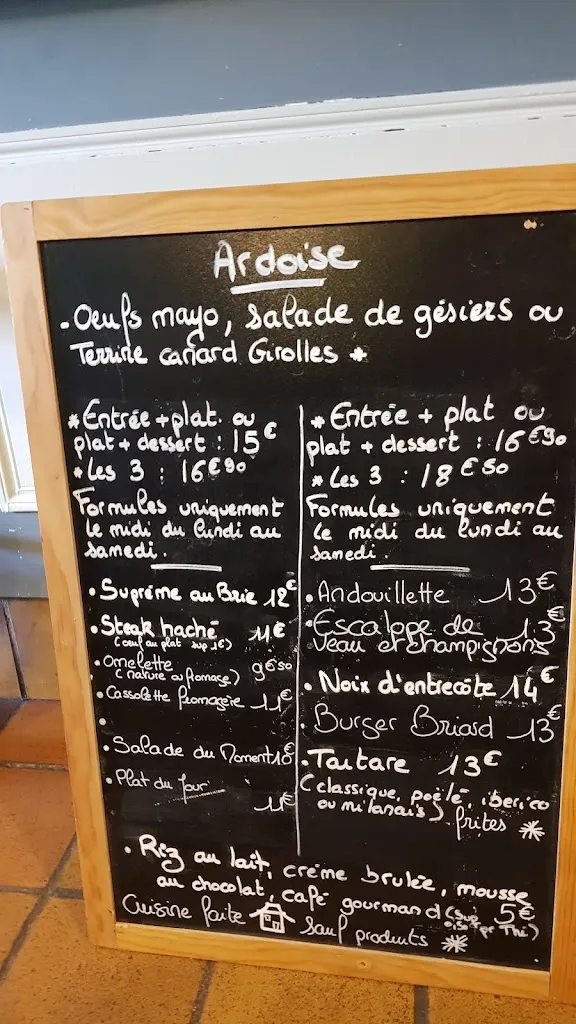 Ardoise
- Oeufs mayo, salade de gésiers ou
Terrine canard Girolles *
* Entrée + plat ou
plat + dessert : 15€
* Les 3 : 16€90
Formules uniquement
le midi du lundi au
samedi.
• Suprême au Brie 12€
• Steak haché 11€
(oeuf au plat sup 1€)
• Omelette 9€50
(nature ou fromage)
• Cassolette fromagère 11€
•
• Salade du Moment 10€
• Plat du Jour
11€
* Entrée + plat ou
plat + dessert : 16€90
* Les 3 : 18€50
Formules uniquement
le midi du lundi au
samedi.
• Andouillette 13€
• Escalope de 13€
veau et champignons
• Noix d'entrecôte 14€
• Burger Briard 13€
• Tartare 13€
(classique, poêlé, iberico
ou milanais) frites *
• Riz au lait, crème brulée, mousse
au chocolat, café gourmand (sup 5€
0,50 pr Thé)
Cuisine faite sauf produits *